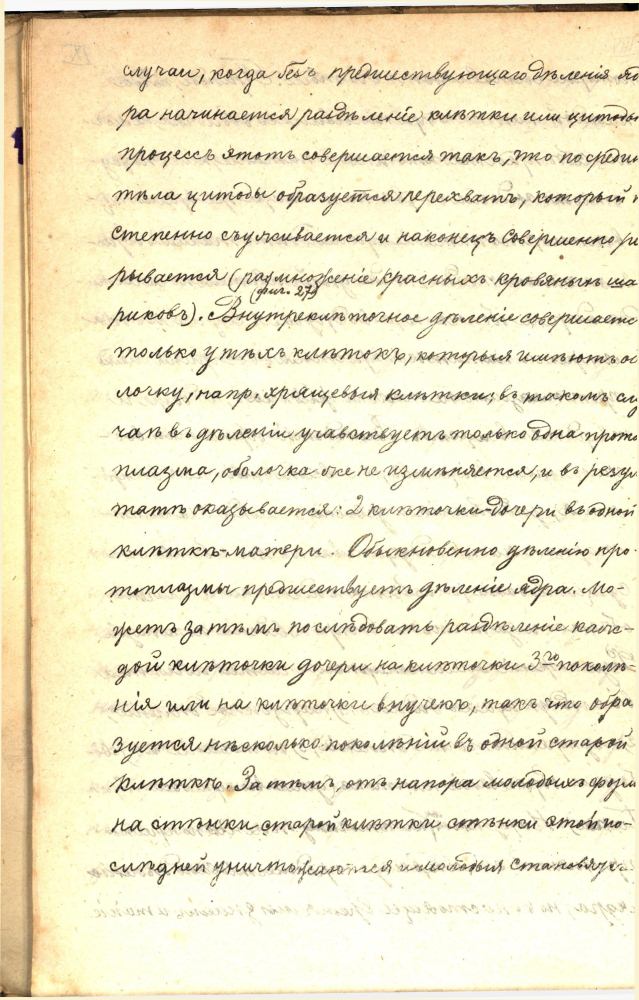 случаи, когда безъ предшествующаго дѣленія яд
ра начинается раздѣленіе клѣтки или цитоды
процессъ этотъ совершается такъ, что посреди
тѣла цитоды образуется перехватъ, который п
степенно съуживается и наконецъ совершенно
рывается (размноженіе красныхъ кровяныхъ ша
(фиг. 27)
риковъ). Внутреклѣточное дѣленіе совершаетс
только у тѣхъ клѣтокъ, которыя имѣютъ об
лочку, напр. хрящевыя клѣтки; въ такомъ слу
чаѣ въ дѣленіи участвуетъ только одна прото
плазма, оболочка же не измѣняется, и въ резул
татѣ оказывается: 2 клѣточки-дочери въ одной
клѣткѣ-матери. Обыкновенно дѣленію про-
топлазмы предшествуетъ дѣленіе ядра. Мо-
жетъ затѣмъ послѣдовать раздѣленіе каж-
дой клѣточки дочери на клѣточки 3го поколѣ-
нія или на клѣточки внучекъ, такъ что обра
зуется нѣсколько поколѣній въ одной старой
клѣткѣ. Затѣмъ, отъ напора молодыхъ форм
на стѣнки старой клѣтки стѣнки этой по-
слѣдней уничтожаются и молодыя становятс